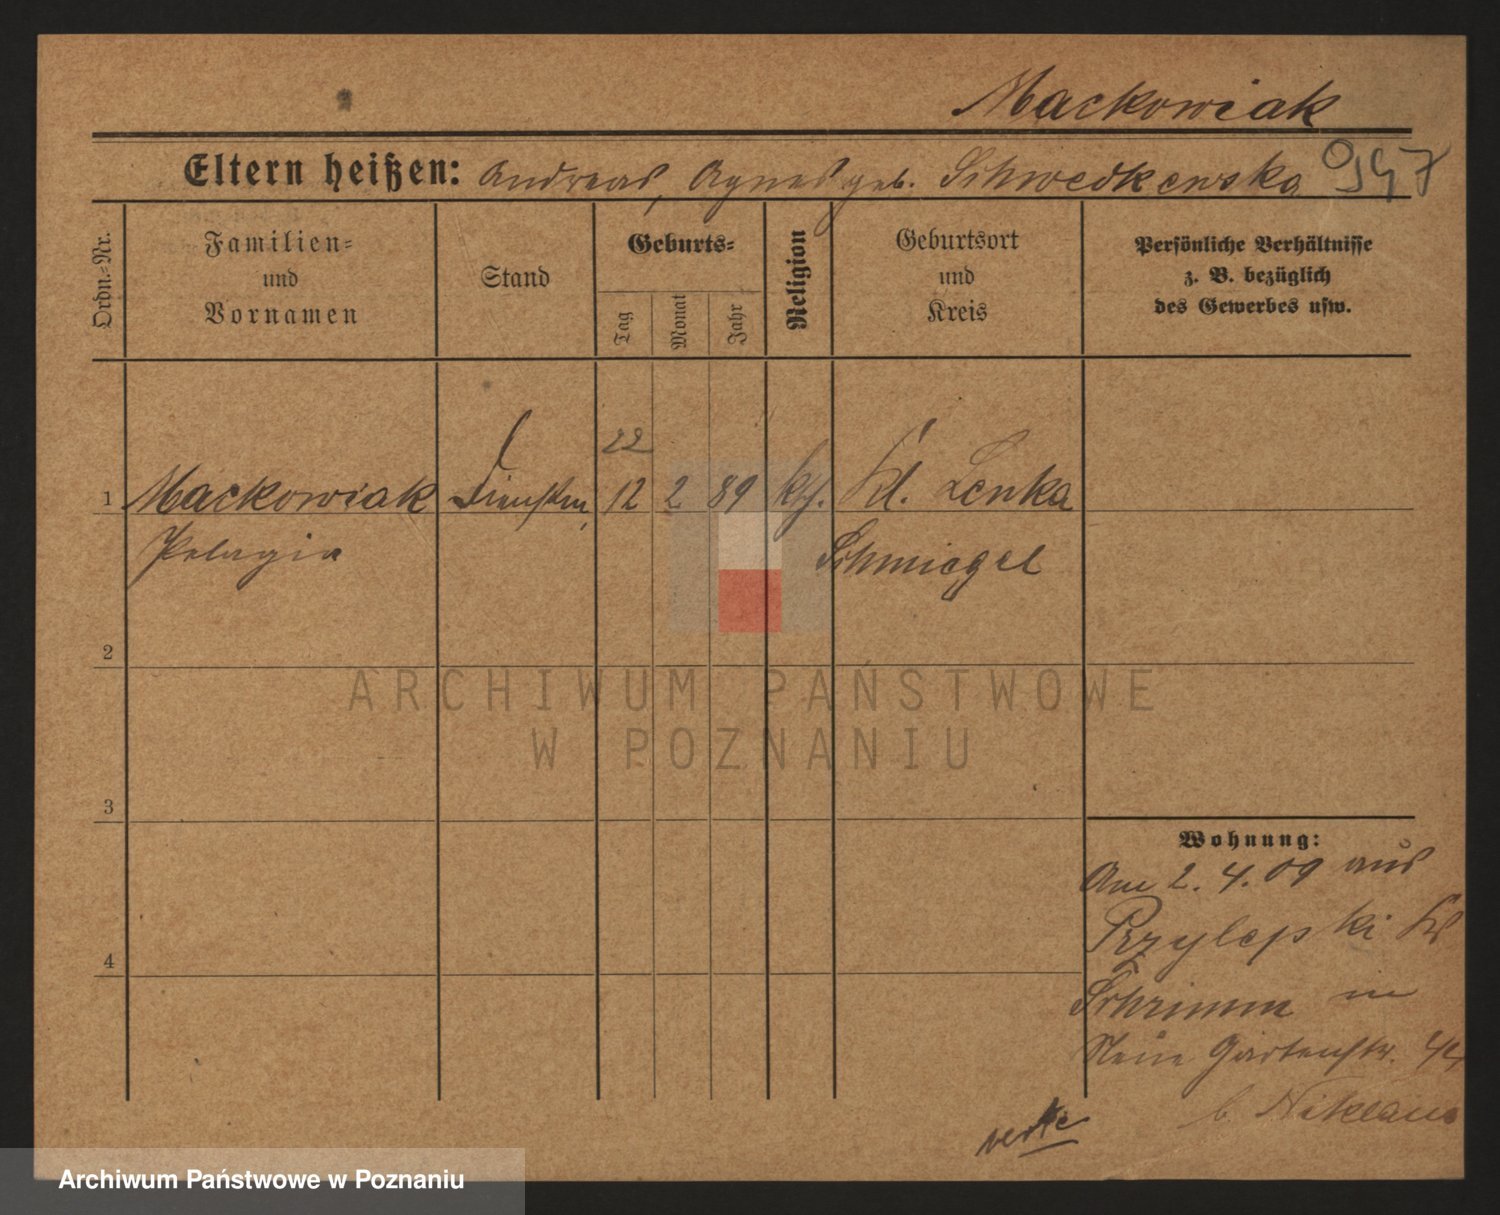 Mackowiak
Eltern heißen: Andreas, Agnes geb. Schwedkewska 947
Ordn.-Nr.
Familien-
und
Vornamen
Stand
Geburts-
Tag
Monat
Jahr
Religion
Geburtsort
und
Kreis
Persönliche Verhältnisse
z. B. bezüglich
des Gewerbes usw.
22
1 Mackowiak 12 2 89 kth. Kl. Lenka
Pelagia Schmiegel
2
3
4
Wohnung:
Am 2. 4. 09 aus
Przylepski Kr
Schrimm in
Neue Gartenstr.
b. Niklaus
ARCHIWUM PAŃSTWOWE
W POZNANIU
Archiwum Państwowe w Poznaniu